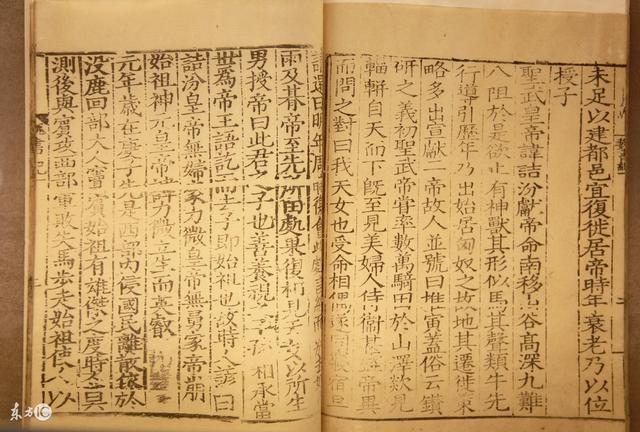 未足以建都邑宜復徙居帝時年衰老乃以位
授子
聖武皇帝諱詰汾獻帝命南移山谷高深九難
八阻於是欲止有神獸其形似馬其聲類牛先
行導引歷年乃出始居匈奴之故地其遷徙策
略多出宣獻二帝故人並號曰推寅蓋俗云鑽
研之義初聖武帝嘗率數萬騎田於山澤欻見
輜軿自天而下既至見美婦人侍衛甚盛帝異
而問之對曰我天女也受命相偶遂同寢宿旦
請還曰明年周時復會此處言終而
雨及朞帝至先所田處果復相見天女以所生
男授帝曰此君之子也善養視之子孫相承當
世爲帝王語訖而去子即始祖也故時人諺曰
詰汾皇帝無婦家力微皇帝無舅家帝崩
始祖神元皇帝諱力微立生而英叡
元年歲在庚子先是西部內侵國民離散依於
没鹿回部大人竇賓始祖有雄傑之度時人莫
測後與賓攻西部軍敗失馬步走始祖使人以
东方IC